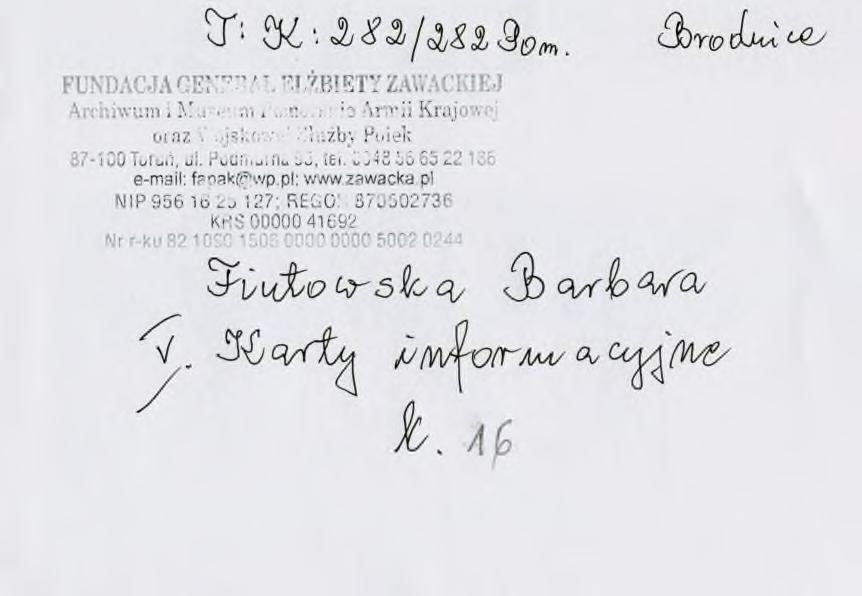 T: K: 282/282 Pom. Brodnica
FUNDACJA GENERAŁ ELŻBIETY ZAWACKIEJ
Archiwum i Muzeum Pomorskie Armii Krajowej
oraz Wojskowej Służby Polek
87-100 Toruń, ul. Podmurna 93, tel. 0048 56 65 22 186
e-mail: fapak@wp.pl; www.zawacka.pl
NIP 956 16 25 127; REGON 870502736
KRS 00000 41692
Nr r-ku 82 1090 1506 0000 0000 5002 0244
Fiutowska Barbara
V. Karty informacyjne
k. 16